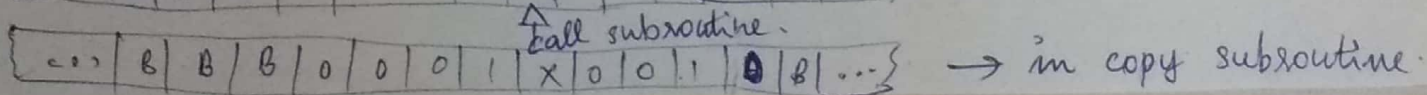 call subroutine.
{ ... | B | B | B | 0 | 0 | 0 | 1 | X | 0 | 0 | 1 | 0 | B | ... } → in copy subroutine.